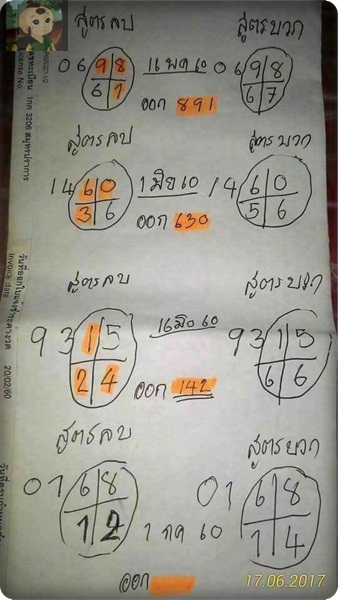 สูตรลบ สูตรบวก
0 6 9 8 11 พค 60 0 6 9 8
6 1 ออก 891 6 7
สูตรลบ สูตรบวก
1 4 6 0 1 มิย 60 1 4 6 0
3 6 ออก 630 5 6
สูตรลบ สูตรบวก
9 3 1 5 16 มิย 60 9 3 1 5
2 4 ออก 142 6 6
สูตรลบ สูตรบวก
0 1 6 8 0 1 6 8
1 2 1 กค 60 1 4
ออก
17.06.2017
Invoice date 20/02/60